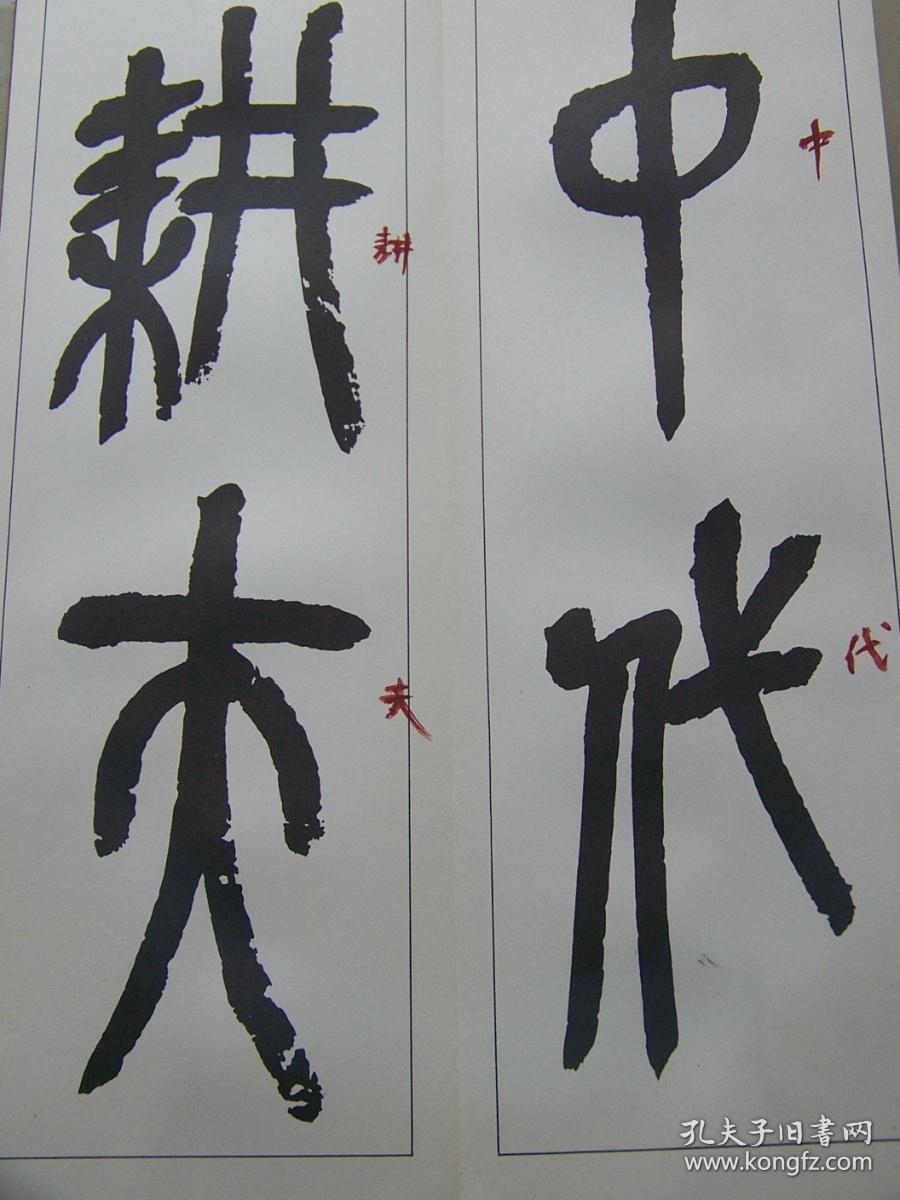 中代
耕夫
中
代
耕
夫
孔夫子旧书网
www.kongfz.com